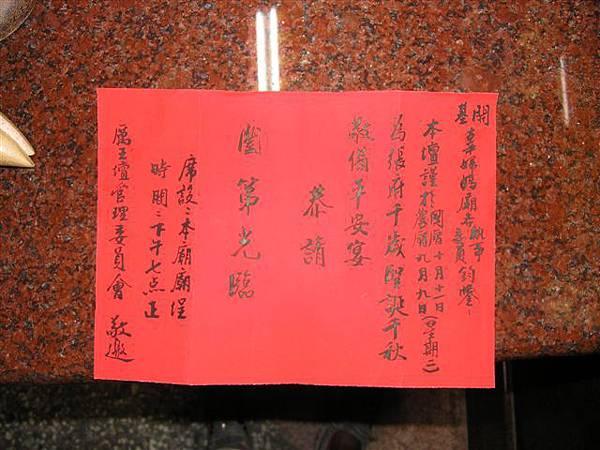 開基辜婦媽廟各執事委員鈞鑒:
本壇謹於國曆十月十一日農曆九月九日(星期二)
為張府千歲聖誕千秋
敬備平安宴
恭請
闔第光臨
席設:本廟廟埕
時間:下午七点正
厲王壇管理委員會 敬邀